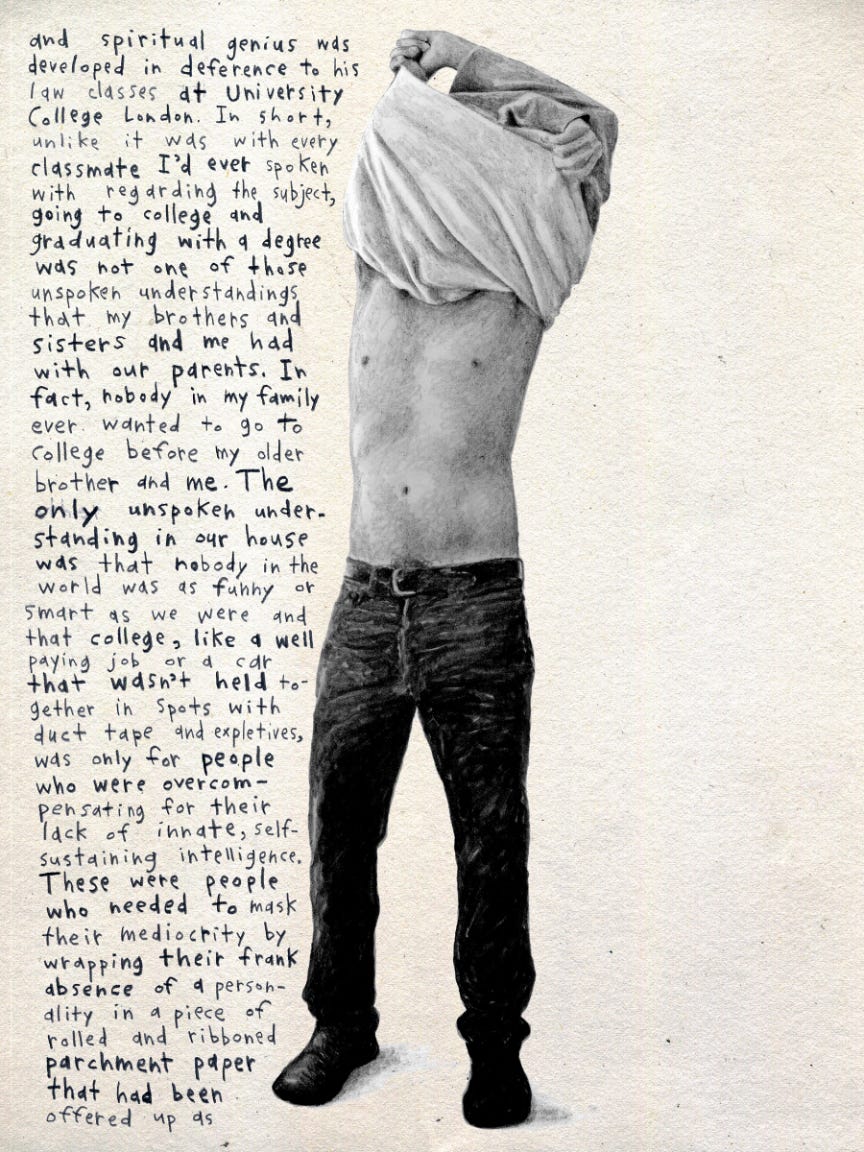 and spiritual genius was
developed in deference to his
law classes at University
College London. In short,
unlike it was with every
classmate I'd ever spoken
with regarding the subject,
going to college and
graduating with a degree
was not one of those
unspoken understandings
that my brothers and
sisters and me had
with our parents. In
fact, nobody in my family
ever wanted to go to
college before my older
brother and me. The
only unspoken under-
standing in our house
was that nobody in the
world was as funny or
smart as we were and
that college, like a well
paying job or a car
that wasn't held to-
gether in spots with
duct tape and expletives,
was only for people
who were overcom-
pensating for their
lack of innate, self-
sustaining intelligence.
These were people
who needed to mask
their mediocrity by
wrapping their frank
absence of a person-
ality in a piece of
rolled and ribboned
parchment paper
that had been
offered up as